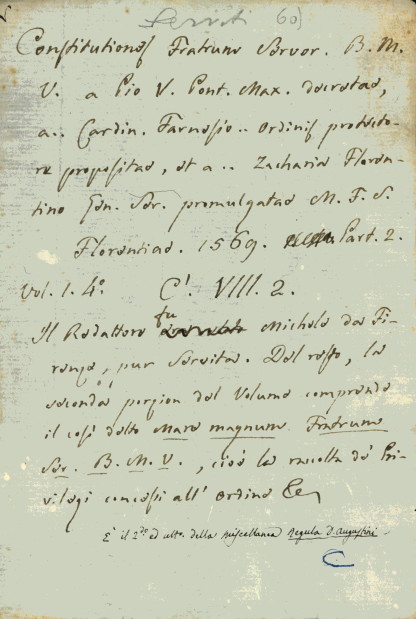 Serviti 60)
Constitutiones Fratrum Servor. B. M.
V. a Pio V. Pont. Max. decretae,
a.. Cardin. Farnesio.. Ordinis protecto-
re propositae, et a.. Zacharia Floren-
tino Gen. Ser. promulgatae M. F. S.
Florentiae. 1569. Part. 2.
Vol. 1. 4.° C'. VIII. 2.
Il Redattore fu Michele da Fi-
renze, pur Servita. Del resto, la
seconda porzion del Volume comprende
il così detto Mare magnum Fratrum
Ser. B. M. V., cioè la raccolta de' Pri-
vilegi concessi all' Ordine
È il 2.do ed ulto. della miscellanea Regula D. Augustini